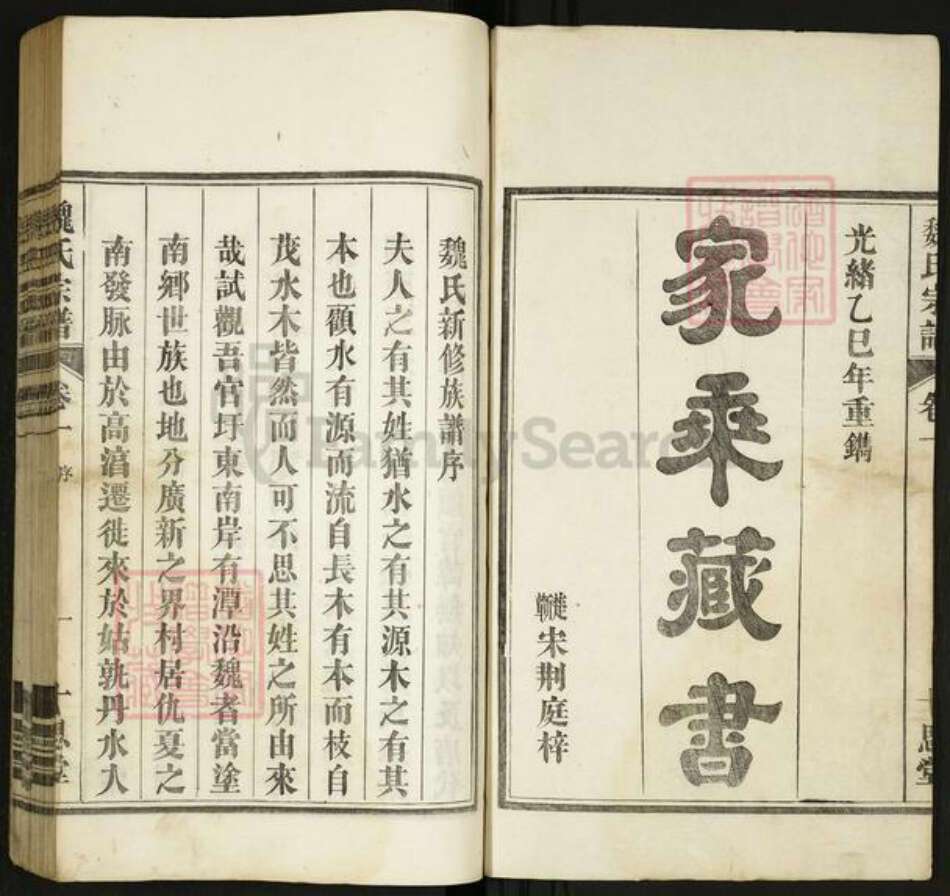 魏氏宗譜
卷一
十思堂
光緒乙巳年重鐫
家乘藏書
宋荆庭梓
魏氏新修族譜序
夫人之有其姓猶水之有其源木之有其
本也顧水有源而流自長木有本而枝自
茂水木皆然而人可不思其姓之所由來
哉試觀吾官圩東南岸有潭沿魏者當塗
南鄉世族也地分廣新之界村居仇夏之
南發脉由於高湻遷徙來於姑孰丹水人
魏氏宗譜
卷一
序
一
十思堂
FamilySearch